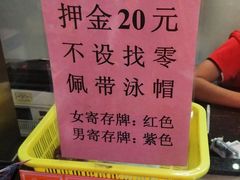 押金20元
不设找零
佩带泳帽
女寄存牌:红色
男寄存牌:紫色